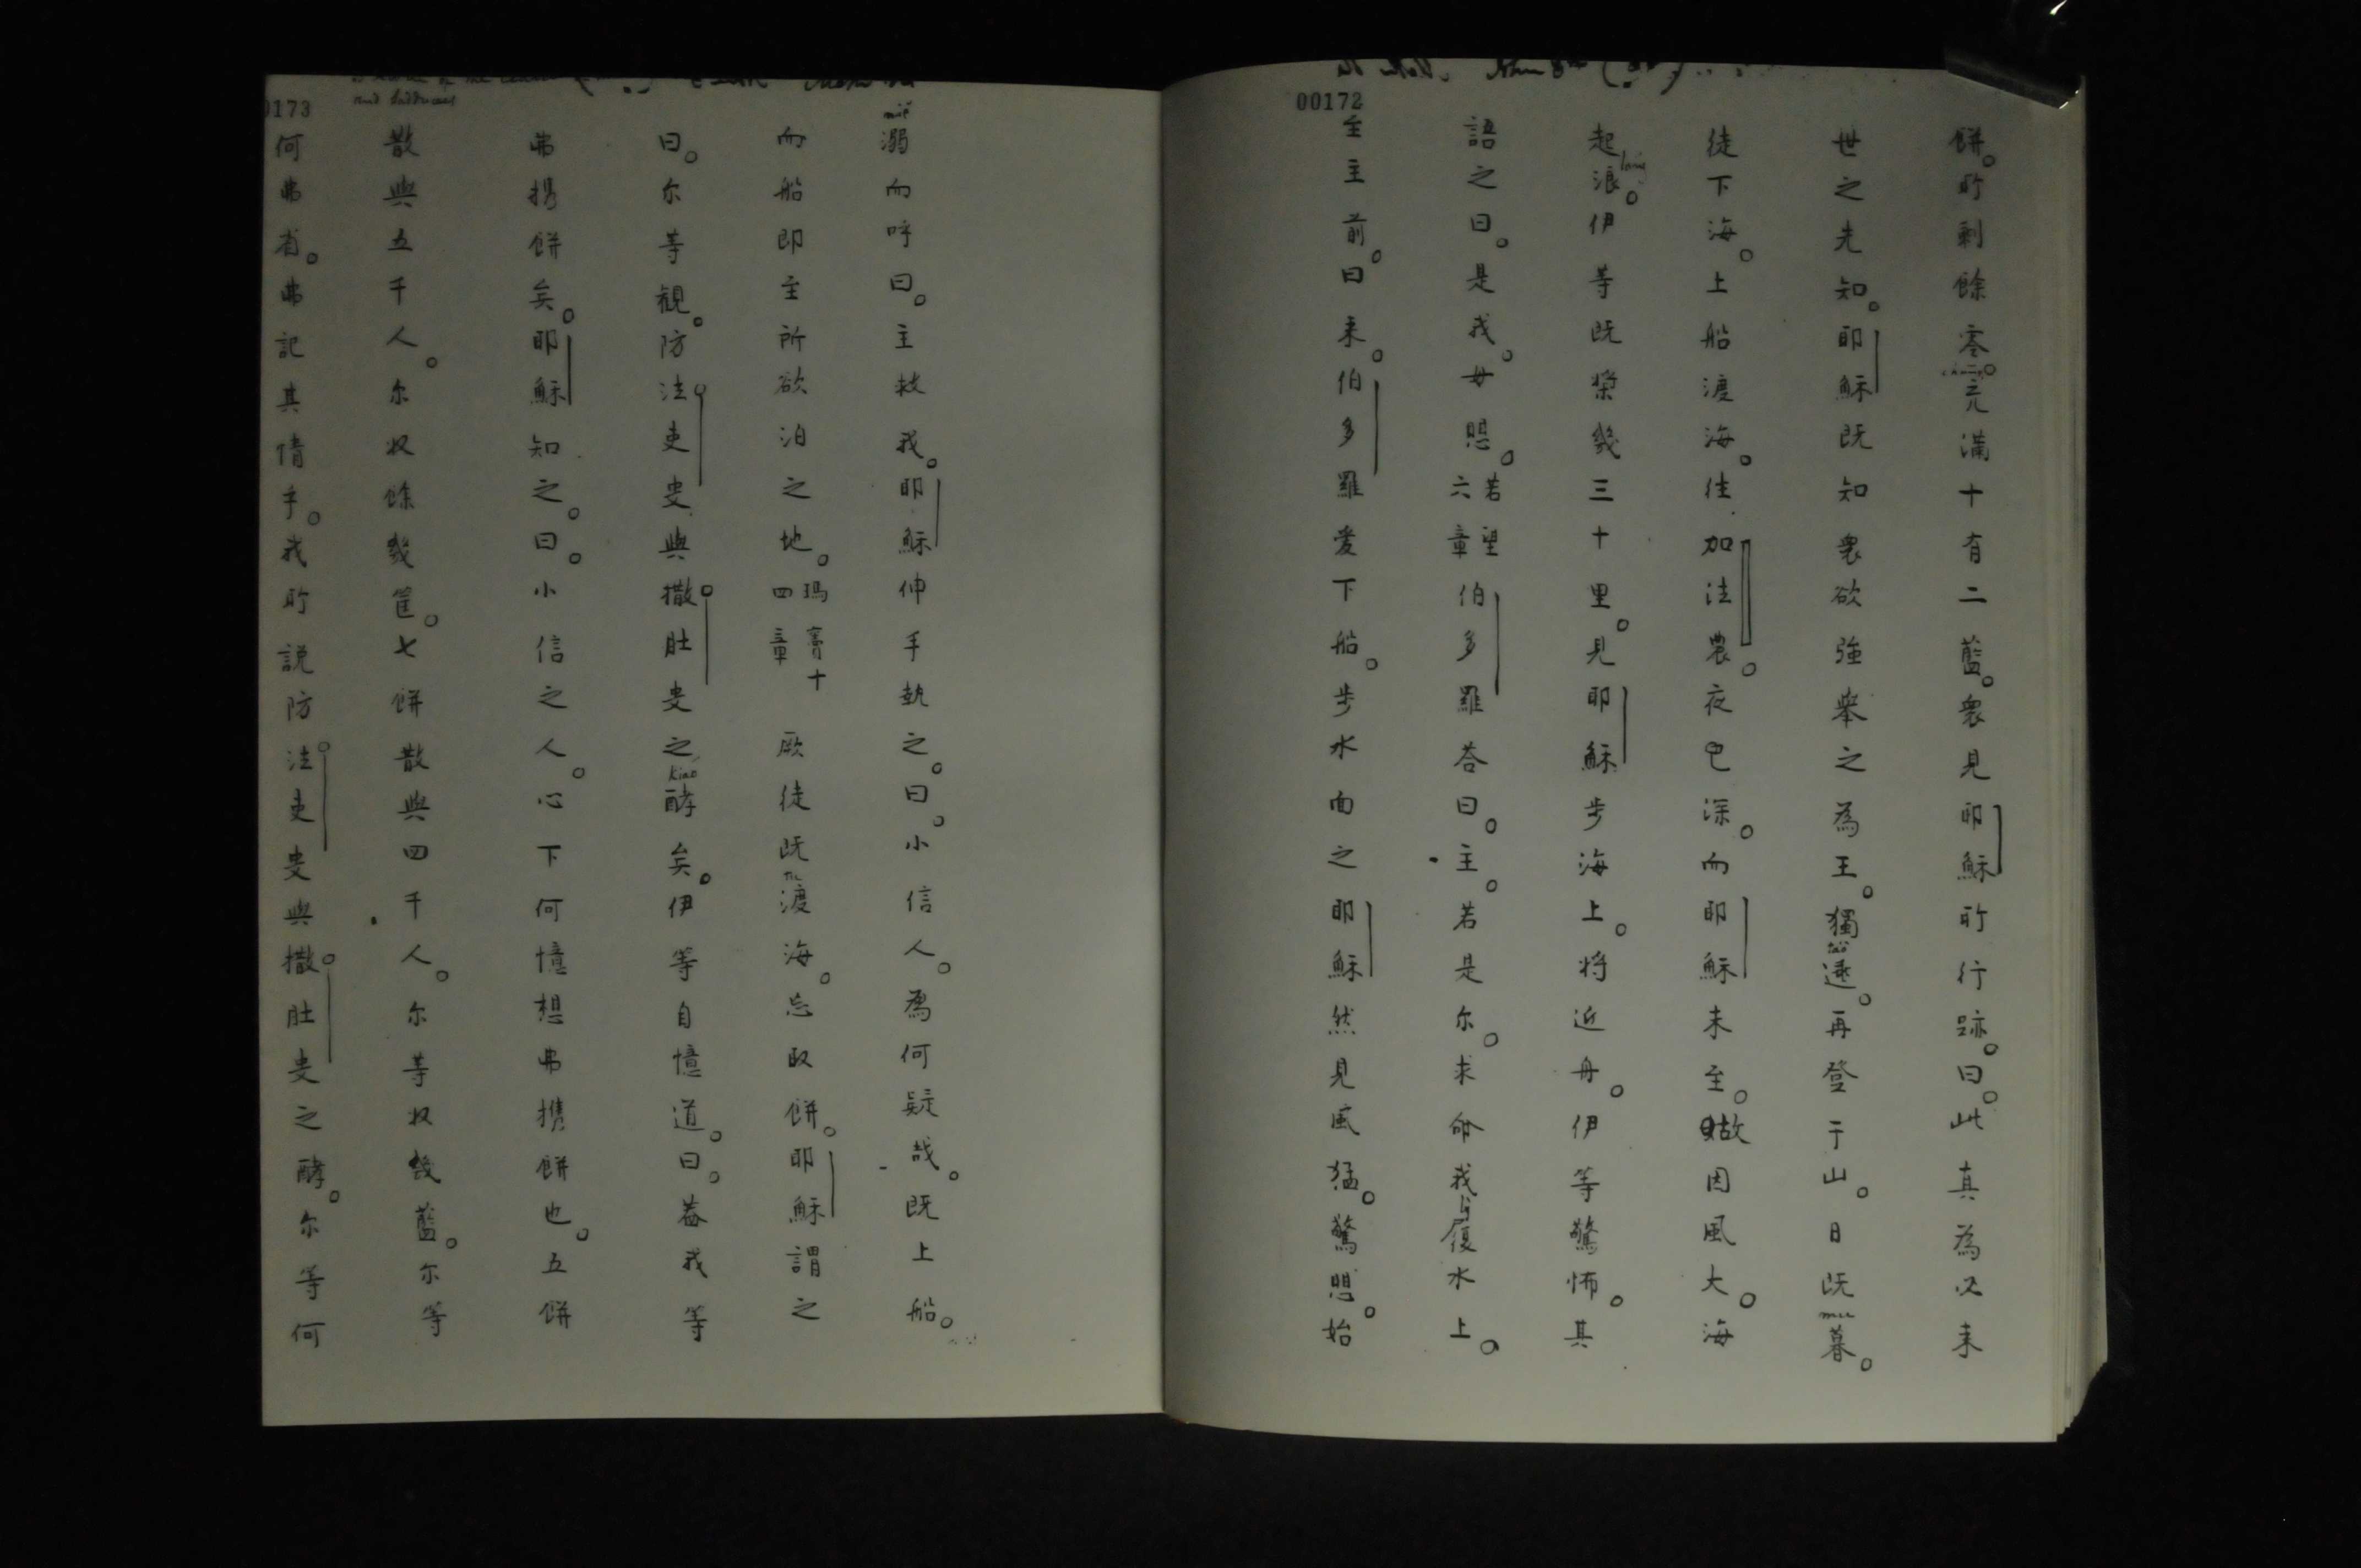 00172
餅。所剩餘零。充滿十有二藍。衆見耶穌所行跡。曰。此真為必来
世之先知。耶穌既知衆欲強舉之為王。獨遜。再登于山。日既暮。
徒下海。上船渡海。往加法農。夜已深。而耶穌未至。故因風大。海
起浪。伊等既槳幾三十里。見耶穌步海上。将近舟。伊等驚怖。其
語之曰。是我。毋惧。若望六章伯多羅荅曰。主。若是尔。求命我履水上。
至主前。曰来。伯多羅爰下船。步水面之耶穌然見風猛。驚惧。始
0173
and Sadducees
溺而呼曰。主救我。耶穌伸手執之。曰。小信人。為何疑哉。既上船。
而船即主所欲泊之地。瑪竇十四章 厥徒既渡海。忘取餅。耶穌謂之
曰。尔等観。防法吏叟與撒肚叟之酵矣。伊等自憶道。曰。盖我等
弗携餅矣。耶穌知之。曰。小信之人。心下何憶想弗携餅也。五餅
散與五千人。尔収餘幾筐。七餅散與四千人。尔等収幾藍。尔等
何弗省。弗記其情乎。我所説防法吏叟與撒肚叟之酵。尔等何